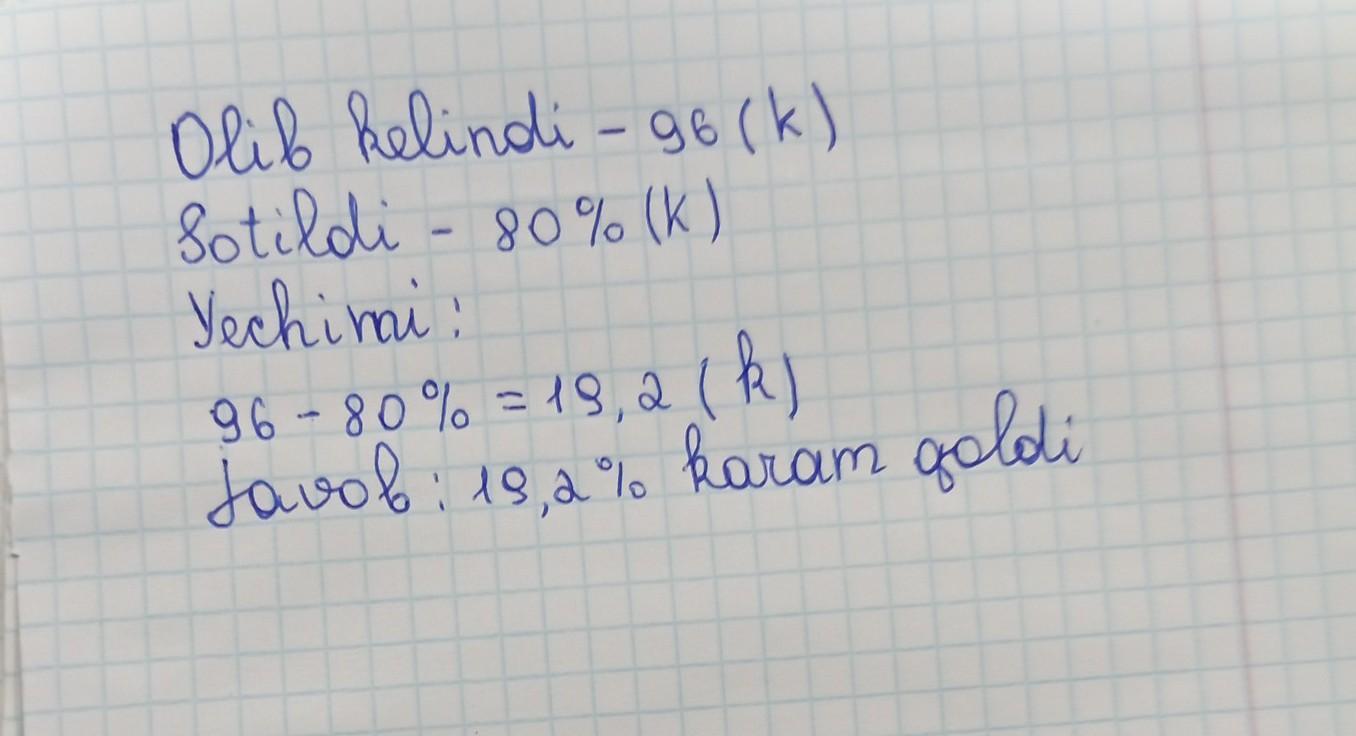 Olib kelindi - 96 (k)
Sotildi - 80% (k)
Yechimi:
96 - 80% = 19,2 (k)
Javob: 19,2% karam qoldi